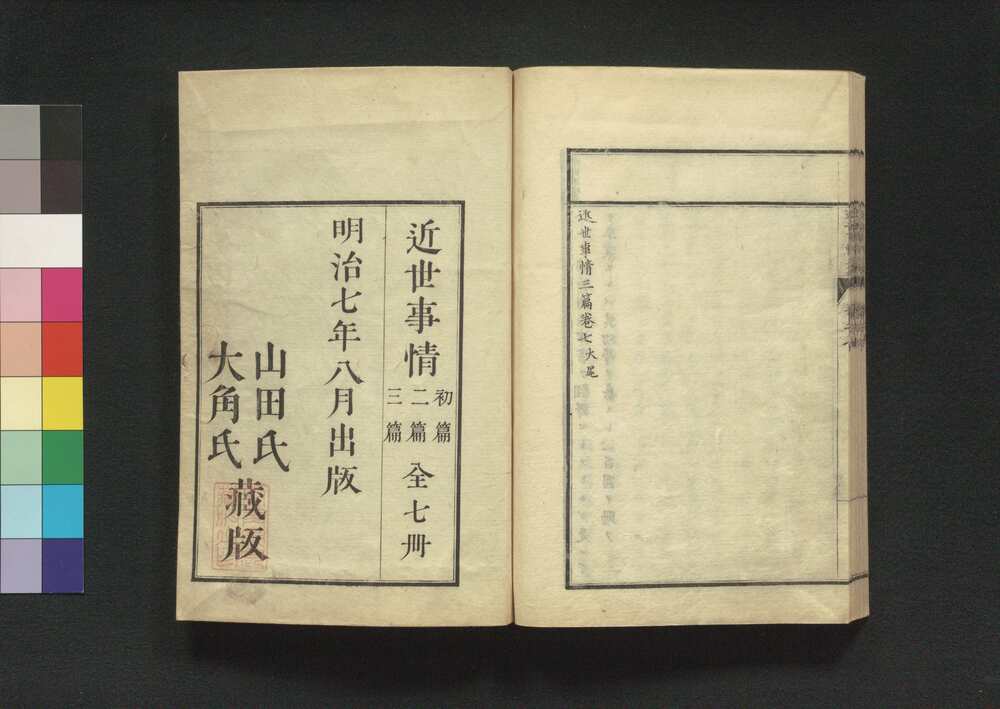 近世事情三篇卷七大尾
近世事情
初篇
二篇
三篇
全七冊
明治七年八月出版
山田氏
大角氏
藏版